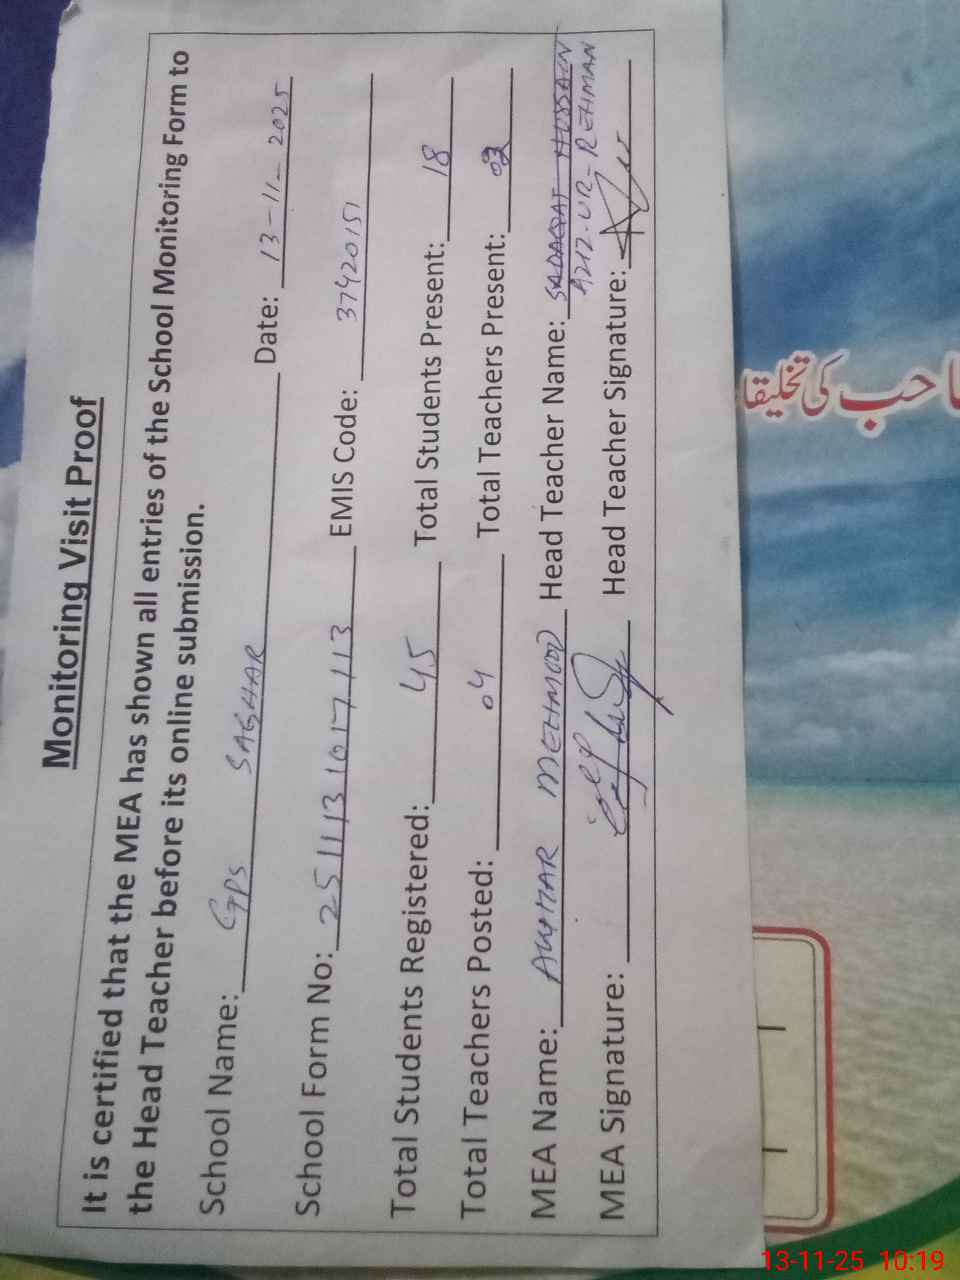 Monitoring Visit Proof
It is certified that the MEA has shown all entries of the School Monitoring Form to
the Head Teacher before its online submission.
School Name: GPS SAGHAR Date: 13-11-2025
School Form No: 25111131017113 EMIS Code: 37420151
Total Students Registered: 45 Total Students Present: 18
Total Teachers Posted: 04 Total Teachers Present:
MEA Name: MEHMOOD Head Teacher Name: SADAQAT HUSSAIN
AZIZ-UR-REHMAN
MEA Signature: Head Teacher Signature:
صاحب کی تخلیقا
13-11-25 10:19